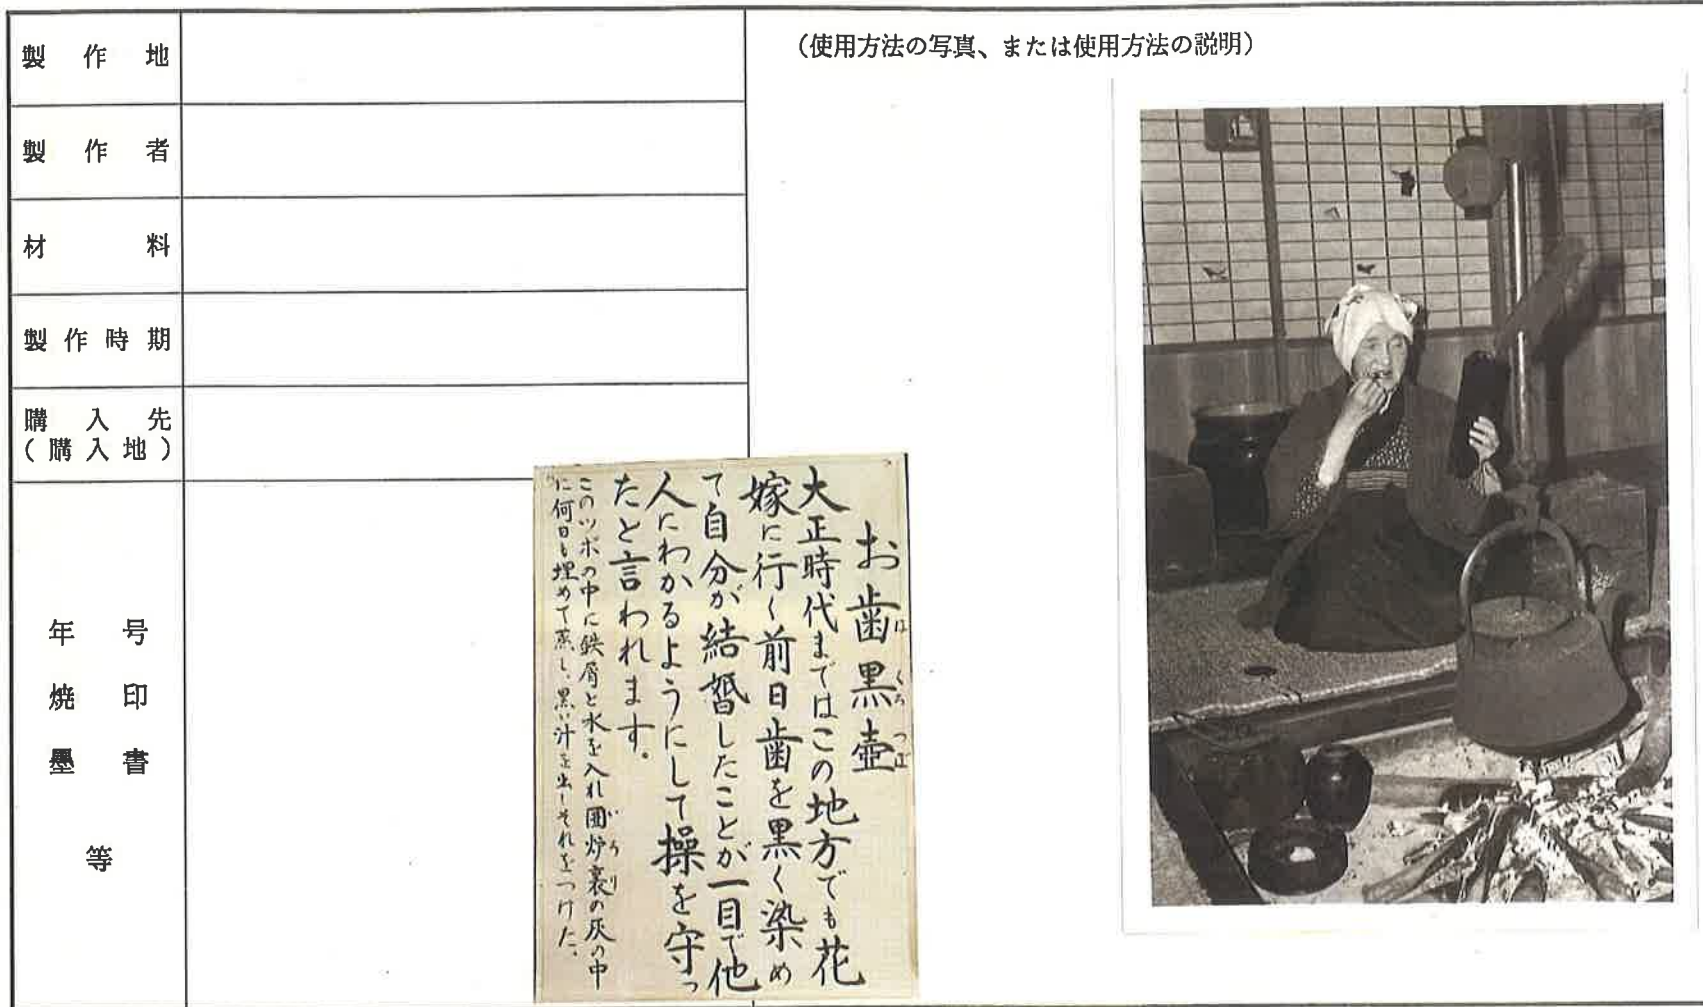 製作地
製作者
材料
製作時期
購入先
(購入地)
年号
焼印
墨書
等
(使用方法の写真、または使用方法の説明)
お歯黒壺
は
くろ
つぼ
大正時代まではこの地方でも花
嫁に行く前日歯を黒く染め
て自分が結婚したことが一目で他
人にわかるようにして操を守っ
たと言われます。
このツボの中に鉄屑と水を入れ囲炉裏の灰の中
いろり
に何日も埋めて蒸し、黒い汁を出しそれをつけた。